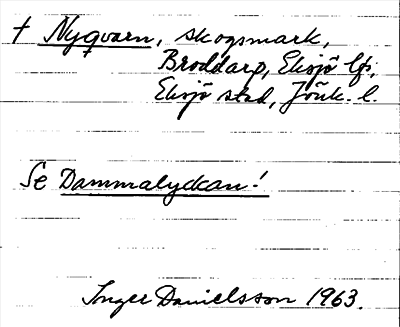 † Nyqvarn, skogsmark,
Broddarp, Eksjö lfs,
Eksjö stad, Jönk. l.
Se Dammalyckan!
Inger Danielsson 1963.